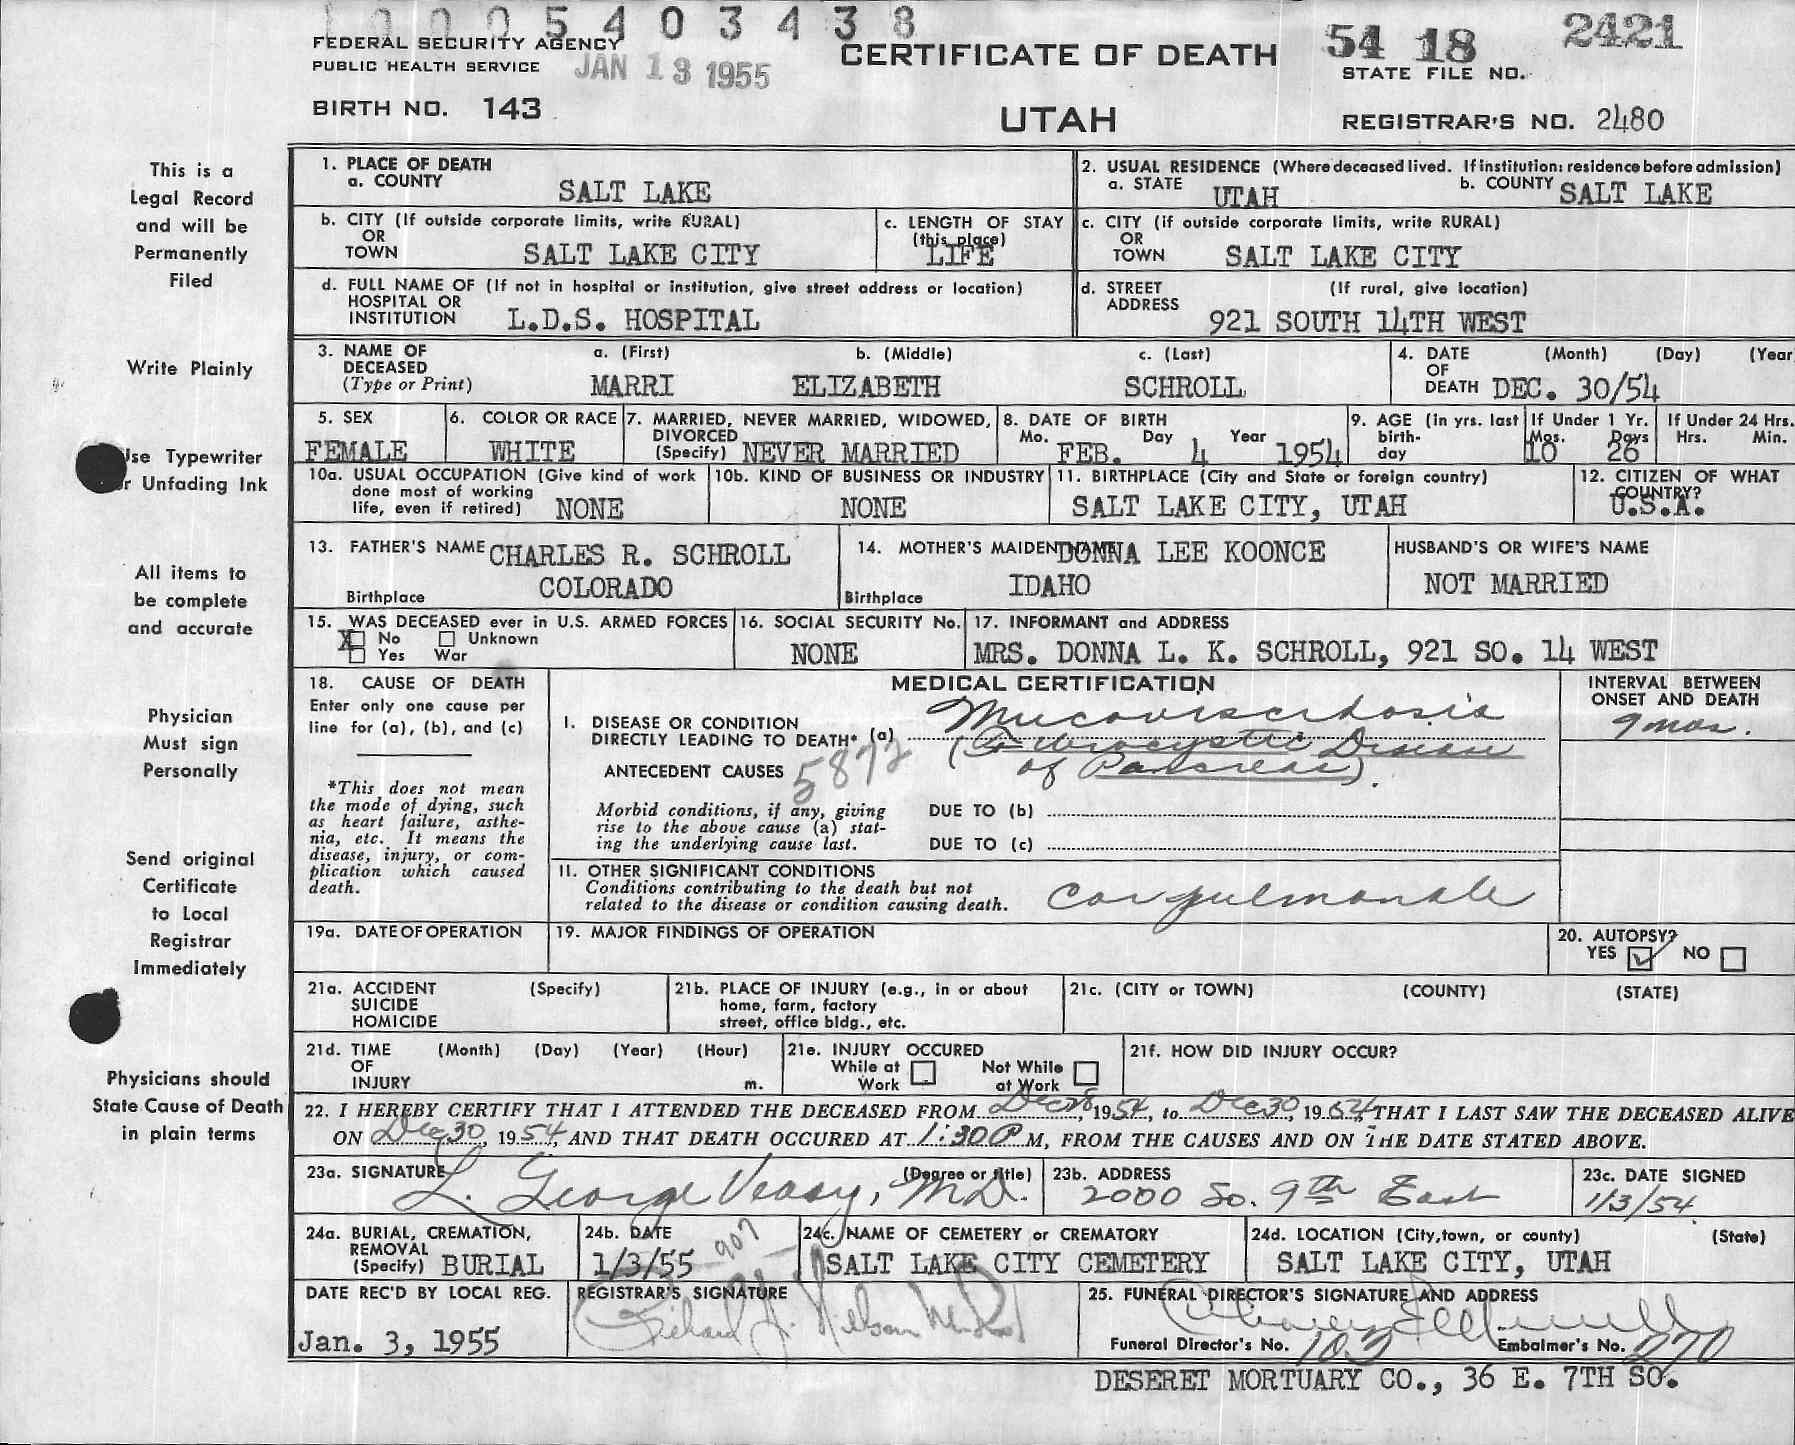 10005403438
FEDERAL SECURITY AGENCY
PUBLIC HEALTH SERVICE
JAN 13 1955
CERTIFICATE OF DEATH
54 18 2421
STATE FILE NO.
BIRTH NO. 143
UTAH
REGISTRAR'S NO. 2480
This is a
Legal Record
and will be
Permanently
Filed
Write Plainly
Use Typewriter
or Unfading Ink
All items to
be complete
and accurate
Physician
Must sign
Personally
Send original
Certificate
to Local
Registrar
Immediately
Physicians should
State Cause of Death
in plain terms
1. PLACE OF DEATH
a. COUNTY SALT LAKE
b. CITY (If outside corporate limits, write RURAL)
OR
TOWN SALT LAKE CITY
c. LENGTH OF STAY
(this place)
LIFE
d. FULL NAME OF (If not in hospital or institution, give street address or location)
HOSPITAL OR
INSTITUTION L.D.S. HOSPITAL
2. USUAL RESIDENCE (Where deceased lived. If institution: residence before admission)
a. STATE UTAH b. COUNTY SALT LAKE
c. CITY (if outside corporate limits, write RURAL)
OR
TOWN SALT LAKE CITY
d. STREET (If rural, give location)
ADDRESS
921 SOUTH 14TH WEST
3. NAME OF DECEASED (Type or Print)
a. (First) b. (Middle) c. (Last)
MARRI ELIZABETH SCHROLL
4. DATE OF DEATH (Month) (Day) (Year
DEC. 30/54
5. SEX
FEMALE
6. COLOR OR RACE
WHITE
7. MARRIED, NEVER MARRIED, WIDOWED,
DIVORCED
(Specify) NEVER MARRIED
8. DATE OF BIRTH
Mo. Day Year
FEB. 4 1954
9. AGE (in yrs. last birth-day
If Under 1 Yr.
Mos. Days
10 26
If Under 24 Hrs.
Hrs. Min.
10a. USUAL OCCUPATION (Give kind of work
done most of working
life, even if retired) NONE
10b. KIND OF BUSINESS OR INDUSTRY
NONE
11. BIRTHPLACE (City and State or foreign country)
SALT LAKE CITY, UTAH
12. CITIZEN OF WHAT
COUNTRY?
U.S.A.
13. FATHER'S NAME CHARLES R. SCHROLL
Birthplace COLORADO
14. MOTHER'S MAIDEN NAME DONNA LEE KOONCE
Birthplace IDAHO
HUSBAND'S OR WIFE'S NAME
NOT MARRIED
15. WAS DECEASED ever in U.S. ARMED FORCES
X No Unknown
Yes War
16. SOCIAL SECURITY No.
NONE
17. INFORMANT and ADDRESS
MRS. DONNA L. K. SCHROLL, 921 SO. 14 WEST
18. CAUSE OF DEATH
Enter only one cause per
line for (a), (b), and (c)
*This does not mean
the mode of dying, such
as heart failure, asthe-
nia, etc. It means the
disease, injury, or com-
plication which caused
death.
MEDICAL CERTIFICATION
I. DISEASE OR CONDITION
DIRECTLY LEADING TO DEATH* (a) Mucoviscidosis
(Fibrocystic Disease
of Pancreas).
ANTECEDENT CAUSES 5872
Morbid conditions, if any, giving
rise to the above cause (a) stat-
ing the underlying cause last.
DUE TO (b)
DUE TO (c)
INTERVAL BETWEEN
ONSET AND DEATH
9 mos.
11. OTHER SIGNIFICANT CONDITIONS
Conditions contributing to the death but not
related to the disease or condition causing death.
cor pulmonale
19a. DATE OF OPERATION
19. MAJOR FINDINGS OF OPERATION
20. AUTOPSY?
YES NO
21a. ACCIDENT (Specify)
SUICIDE
HOMICIDE
21b. PLACE OF INJURY (e.g., in or about
home, farm, factory
street, office bldg., etc.
21c. (CITY or TOWN) (COUNTY) (STATE)
21d. TIME (Month) (Day) (Year) (Hour)
OF
INJURY m.
21e. INJURY OCCURED
While at Work
Not While at Work
21f. HOW DID INJURY OCCUR?
22. I HEREBY CERTIFY THAT I ATTENDED THE DECEASED FROM Dec 28, 1954, to Dec 30, 1954, THAT I LAST SAW THE DECEASED ALIVE
ON Dec 30, 1954, AND THAT DEATH OCCURED AT 1:30 P M, FROM THE CAUSES AND ON THE DATE STATED ABOVE.
23a. SIGNATURE (Degree or title)
L. George Veasy, M.D.
23b. ADDRESS
2000 So. 9th East
23c. DATE SIGNED
1/3/54
24a. BURIAL, CREMATION,
REMOVAL
(Specify) BURIAL
24b. DATE
1/3/55
907
24c. NAME OF CEMETERY or CREMATORY
SALT LAKE CITY CEMETERY
24d. LOCATION (City, town, or county) (State)
SALT LAKE CITY, UTAH
DATE REC'D BY LOCAL REG.
Jan. 3, 1955
REGISTRAR'S SIGNATURE
Richard
25. FUNERAL DIRECTOR'S SIGNATURE AND ADDRESS
Funeral Director's No. 103 Embalmer's No. 270
DESERET MORTUARY CO., 36 E. 7TH SO.